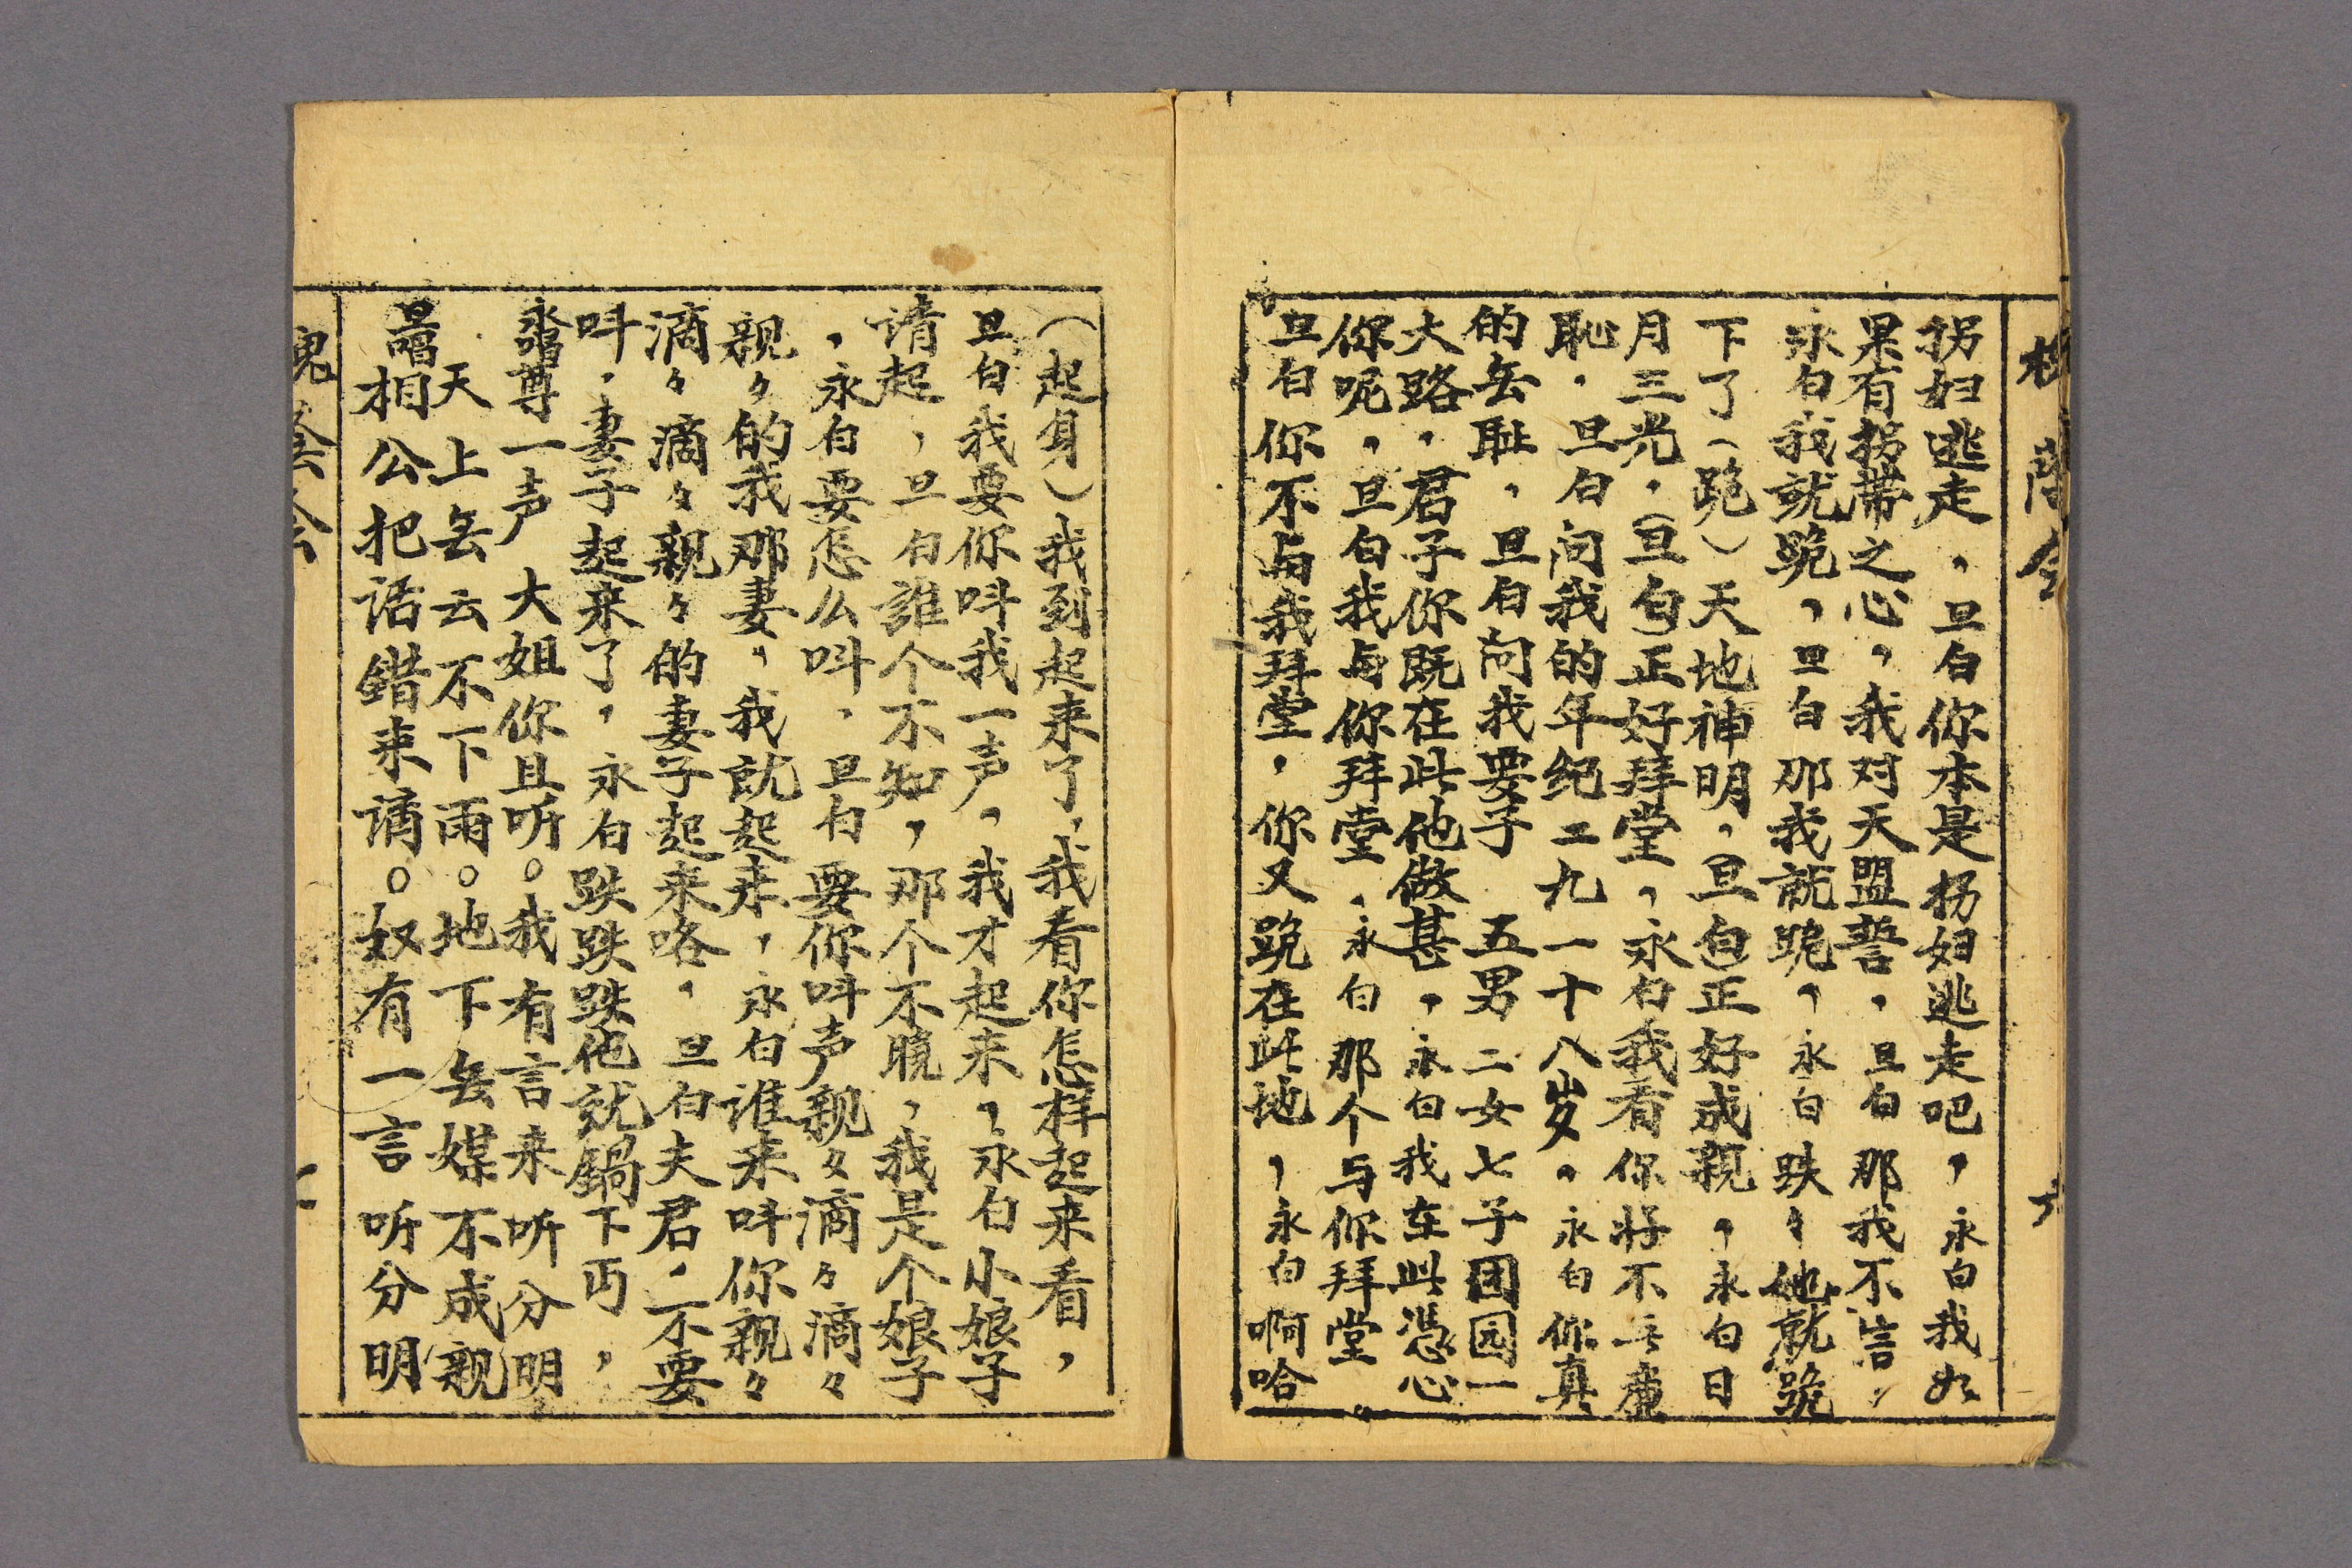 拐妇逃走，旦白你本是拐妇逃走吧，永白我如
果有拐带之心，我对天盟誓，旦白那我不言，
永白我就跪，旦白那我就跪，永白跌々他就跪
下了（跪）天地神明，旦白正好成親，永白日
月三光，旦白正好拜堂，永白我看你好不無廉
恥，旦白问我的年纪二九一十八岁，永白你真
的無耻，旦白问我要子 五男二女七子团园一
大路，君子你既在此他做甚，永白我在此憑心
你呢，旦白我与你拜堂，永白那个与你拜堂。
旦白你不与我拜堂，你又跪在此地，永白啊哈
（起身）我到起来了，我看你怎样起来看，
旦白我要你呌我一声，我才起来，永白小娘子
请起，旦白誰个不知，那个不曉，我是个娘子
，永白要怎么呌，旦白要你呌声親々滴々滴々
親々的我那妻，我就起来，永白谁来呌你親々
滴々滴々親々的妻子起来咯，旦白夫君，不要
呌，妻子起来了，永白跌跌跌他就鍋下丏，
永唱尊一声 大姐你且听。我有言来听分明
天上無云不下雨。地下無媒不成親
旦唱相公把话錯来講。奴有一言听分明
槐蔭会